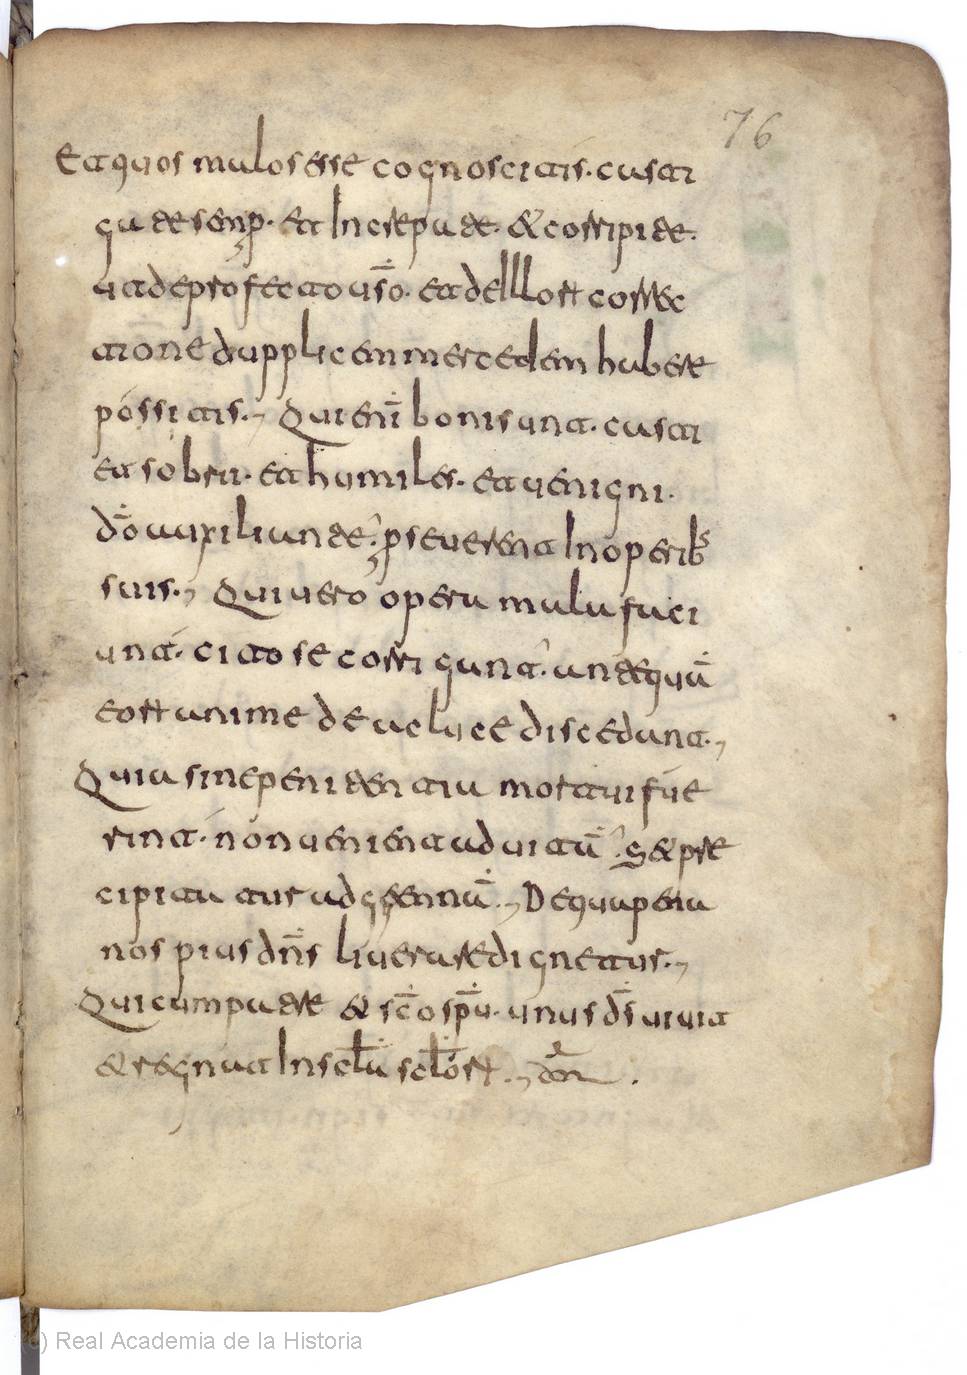 76
Et quos malos esse cognoscitis. casti
gate semꝑ. et Increpate. & corripite.
ut de profecto ūso. et de Illoꝝ correc
tione dupplicem mercedem habere
possitis., Qui enī boni sunt. casti
et sobrii. et humiles. et uenigni.
dō auxiliante. ꝑseuerent In operibs
suis., Qui uero opera mala faci
unt. cito se corrigunt. antequā
eoꝝ anime de ac luce discedunt.,
Quia sine penitentia mortui fue
rint. non uenient ad uitā. S& pre
cipita tur ad geennā., De qua pena
nos pius dn̄s liuerare dignetur.,
Qui cum patre & sc̄o sp̄u. unus ds̄ uiuit
& regnat In scl̄a scl̄oꝝ.,
(c) Real Academia de la Historia